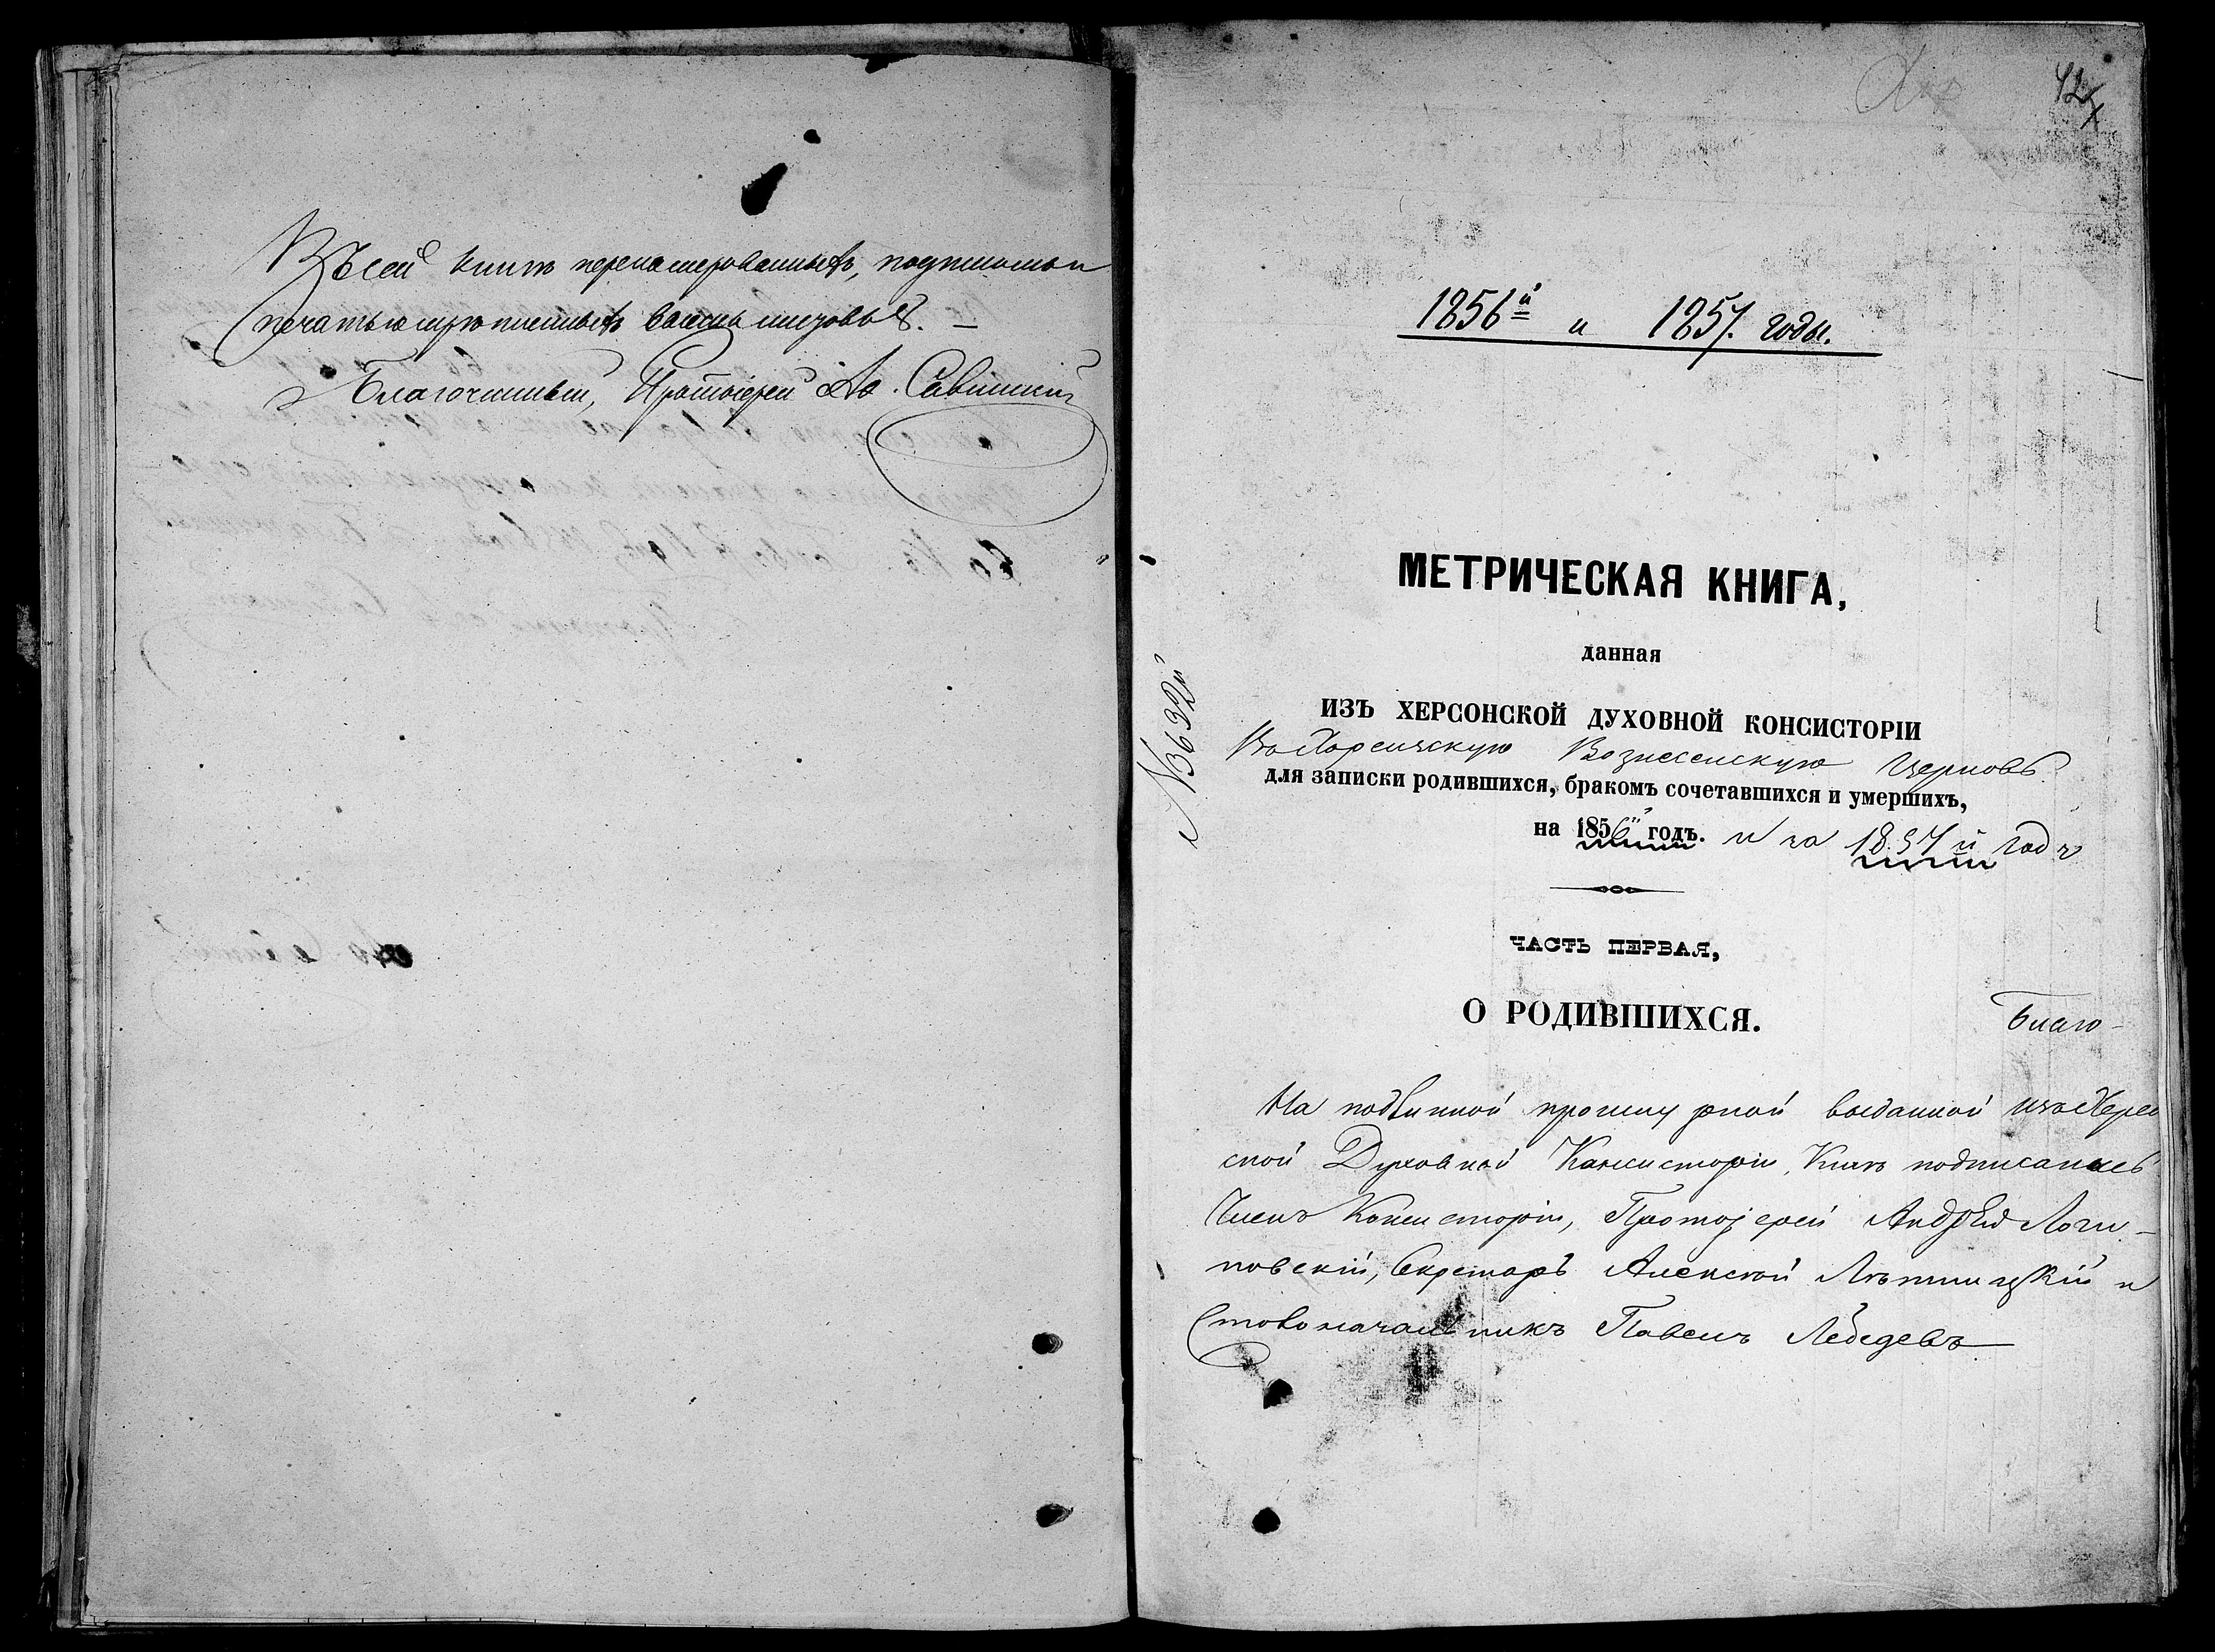 Въ сей книгѣ перенамерованныхъ, подписомъ и
печатью скрѣпленныхъ листовъ. —
Благочинный, Протоіерей Савицкій
42
1856й и 1857. годы.
МЕТРИЧЕСКАЯ КНИГА,
данная
№ 3632й
ИЗЪ ХЕРСОНСКОЙ ДУХОВНОЙ КОНСИСТОРІИ
Вознесенскую Церковь
для записки родившихся, бракомъ сочетавшихся и умершихъ,
на 1856й годъ. и на 1857й годъ
ЧАСТЬ ПЕРВАЯ,
О РОДИВШИХСЯ.
Благо-
На подлинной прошнурной выданной изъ Херсо
ской Духовной Консисторіи, Книгѣ подписались
Членъ Консисторіи, Протоіерей Андрей Логи-
новскій, Секретарь Алексѣй и
Столоначальникъ Павелъ Лебедевъ